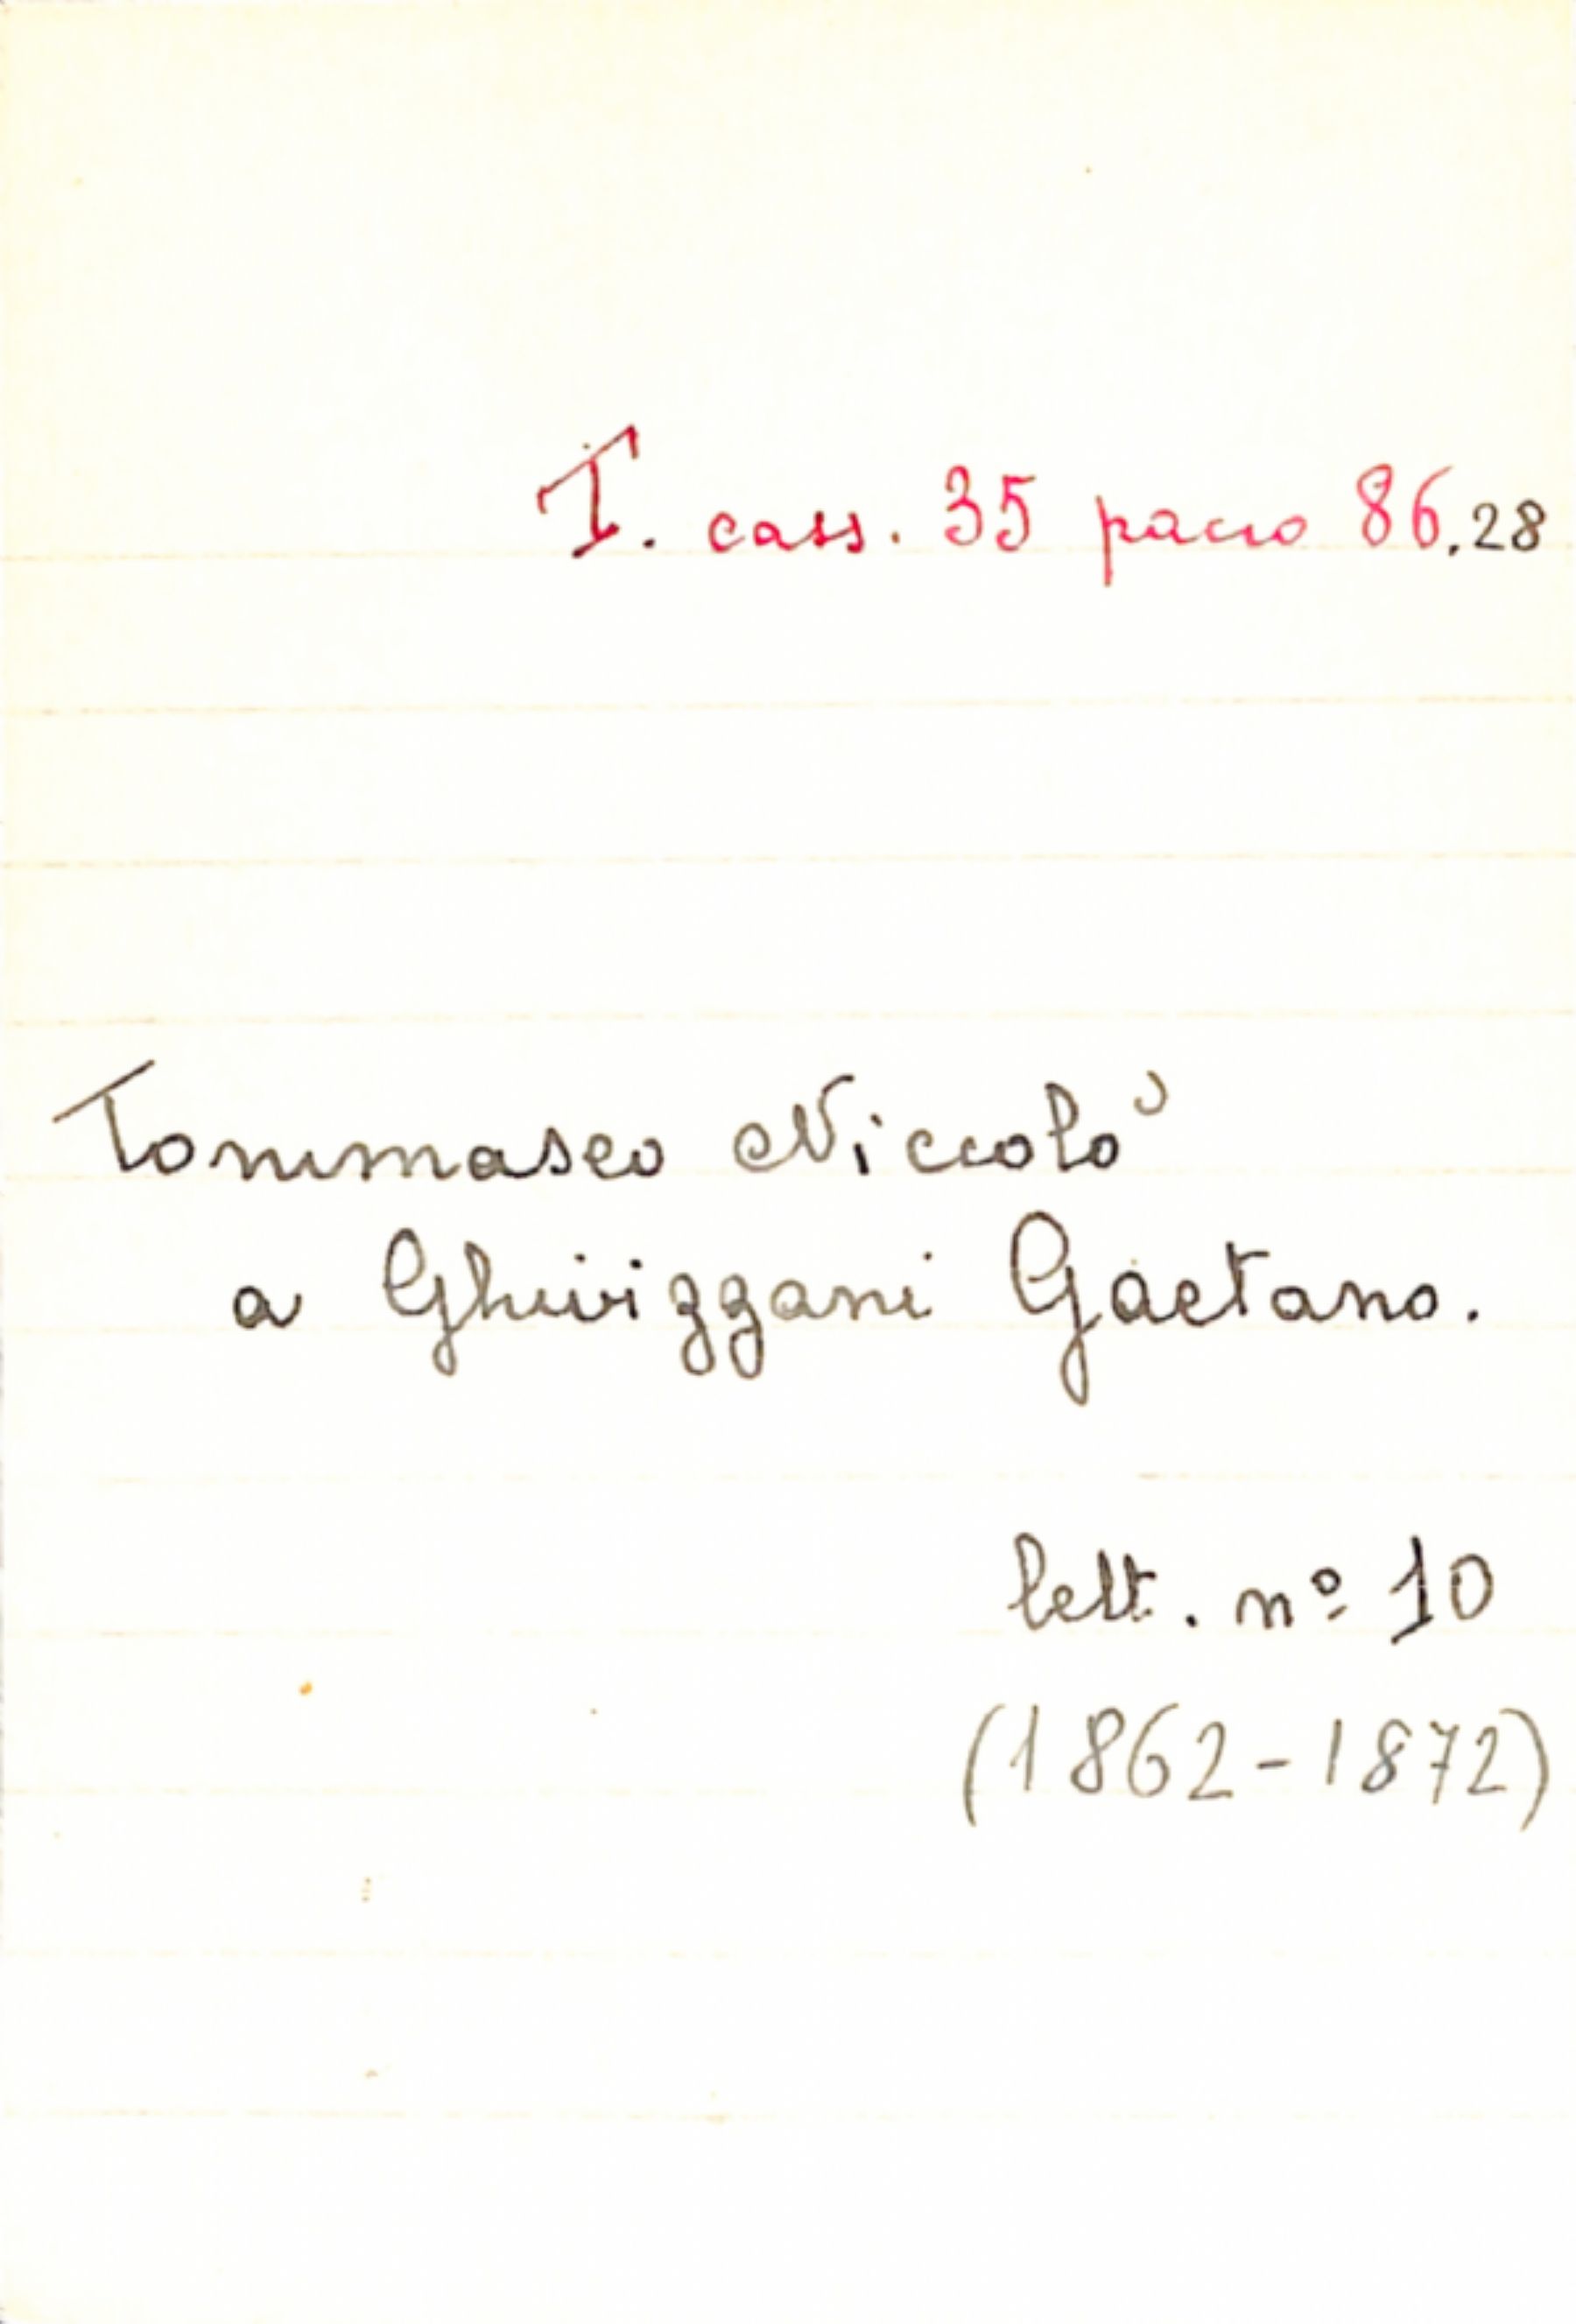 T. cass. 35 pacco 86.28
Tommaseo Niccolò
a Ghivizzani Gaetano.
lett. nº 10
(1862-1872)